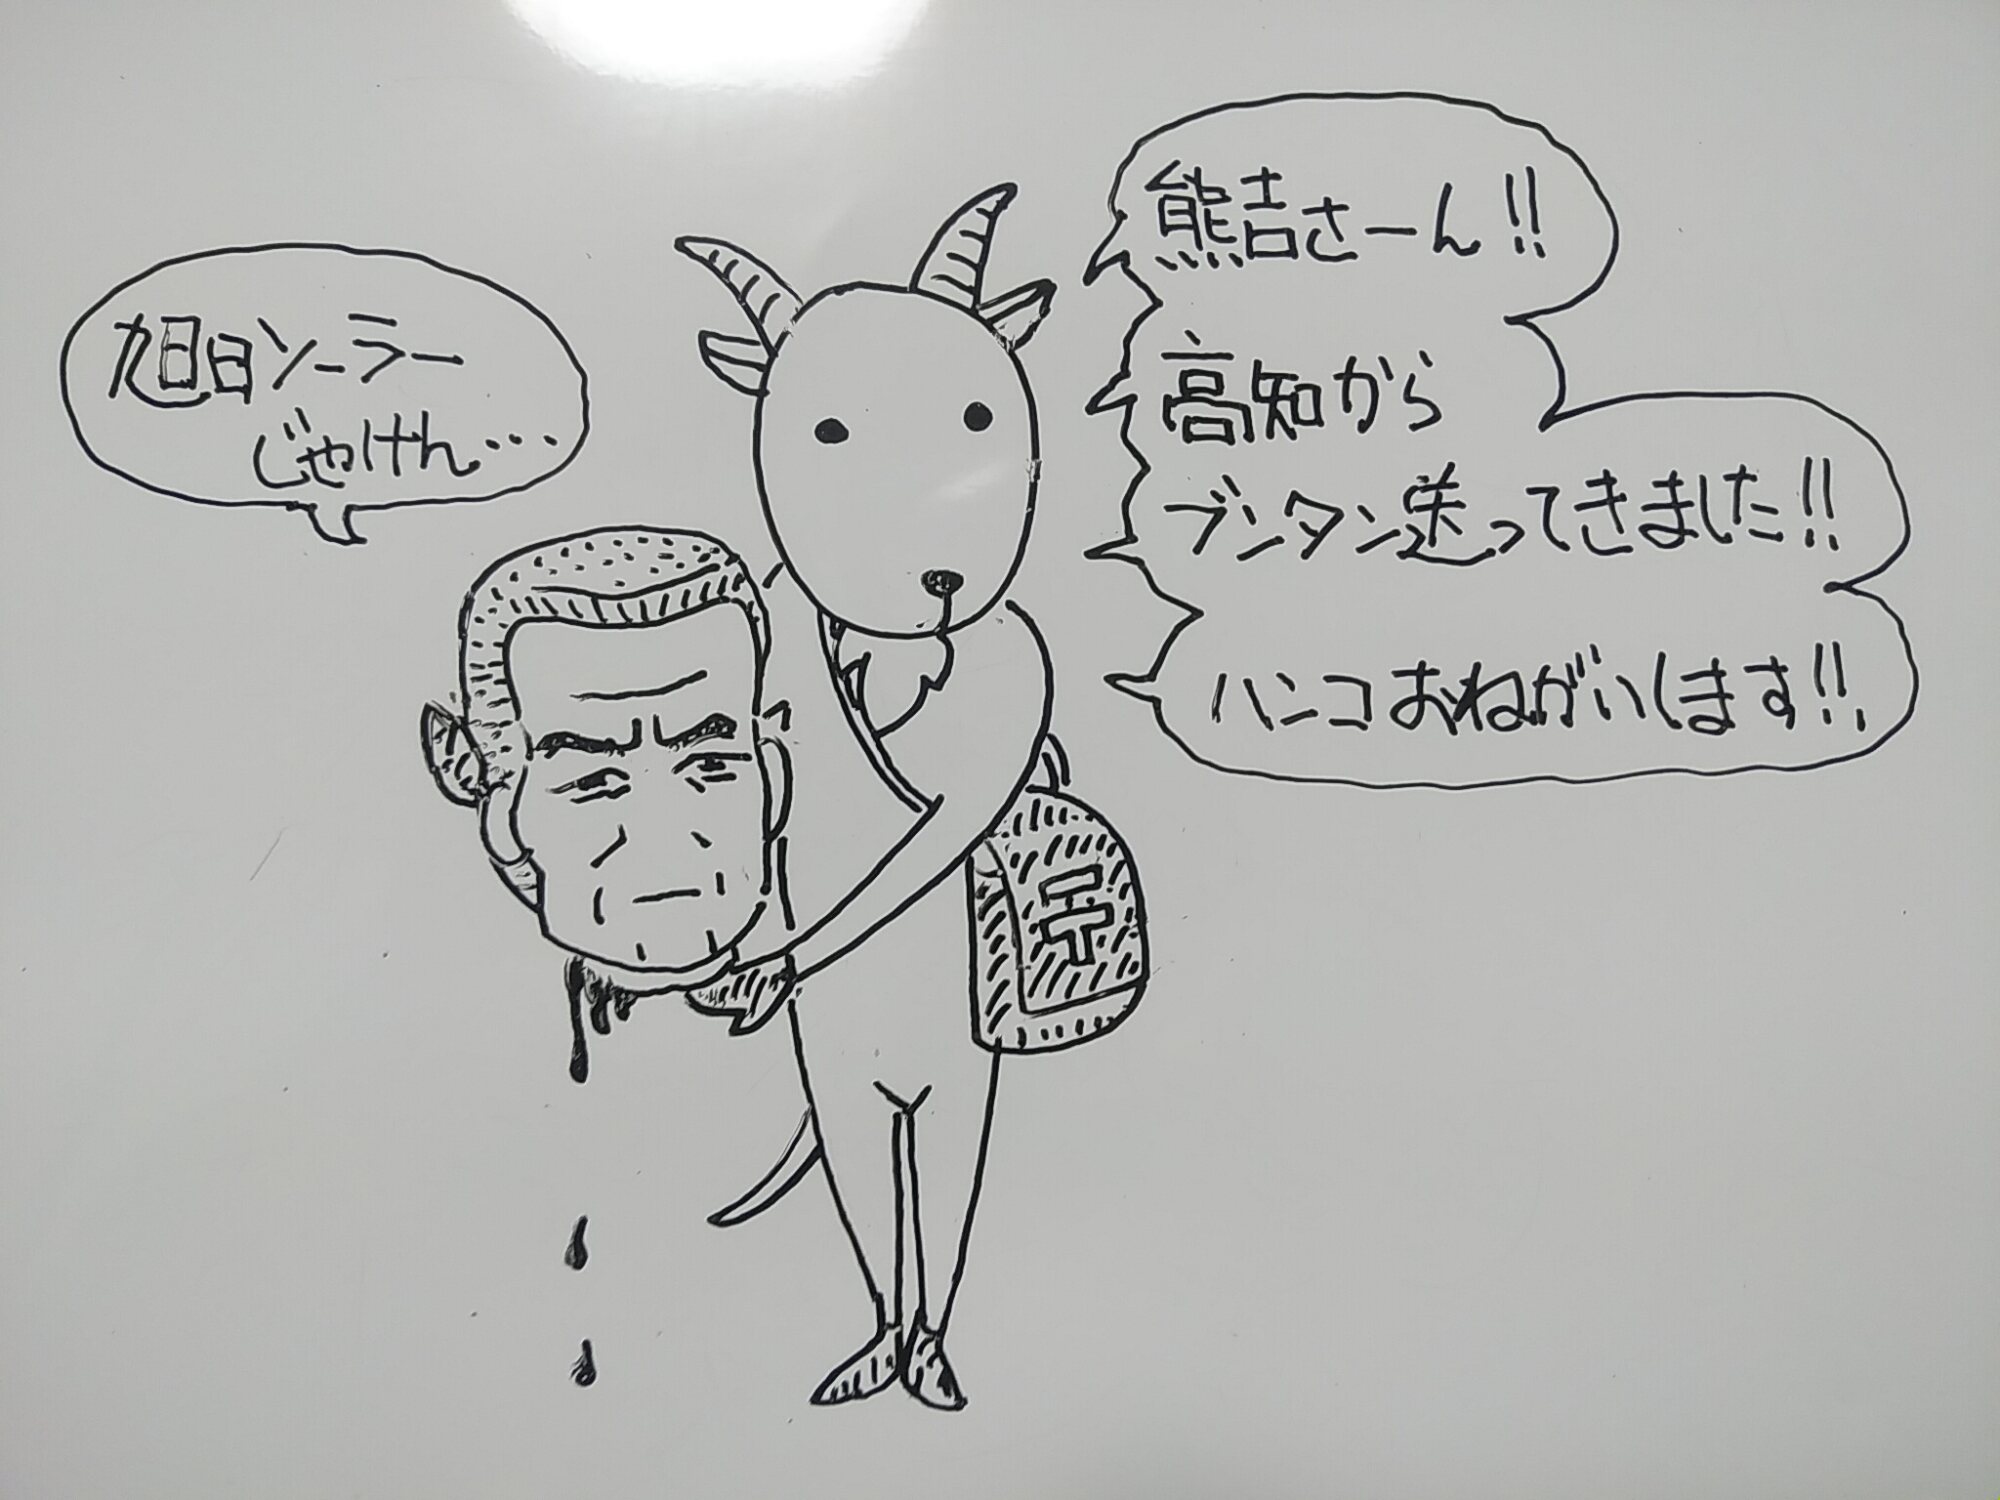 熊吉さーん!!
高知から
ブンタン送ってきました!!
ハンコおねがいします!!
旭日ソーラー
じゃけん…
〒